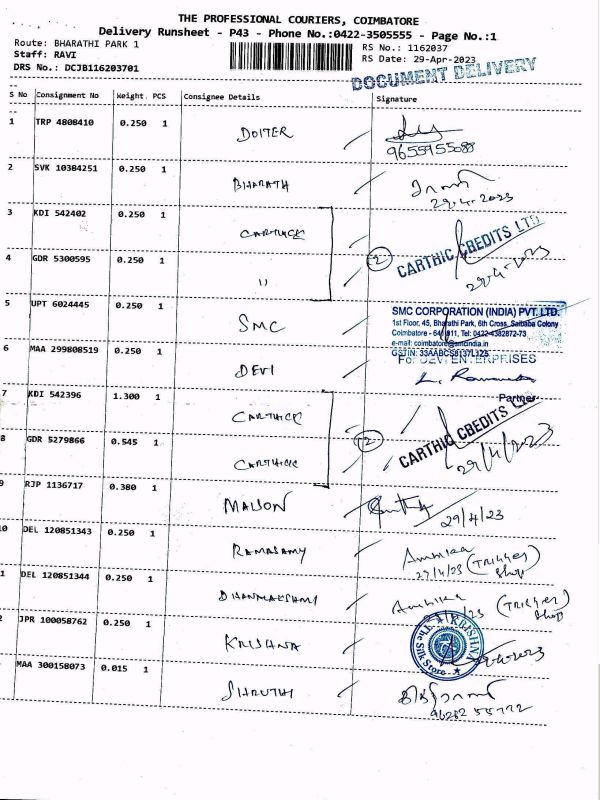 THE PROFESSIONAL COURIERS, COIMBATORE
Delivery Runsheet - P43 - Phone No.:0422-3505555 - Page No.:1
Route: BHARATHI PARK 1
Staff: RAVI
DRS No.: DCJB116203701
RS No.: 1162037
RS Date: 29-Apr-2023
DOCUMENT DELIVERY
S No Consignment No Weight PCS Consignee Details Signature
1 TRP 4808410 0.250 1 DOITER
9655955088
2 SVK 10384251 0.250 1 BHARATH
29.4.2023
3 KDI 542402 0.250 1 CARTHICK
CARTHIC CREDITS LTD
4 GDR 5300595 0.250 1 " 2
29-4-2023
5 UPT 6024445 0.250 1 SMC
SMC CORPORATION (INDIA) PVT. LTD.
1st Floor, 45, Bharathi Park, 6th Cross, Saibaba Colony
Coimbatore - 641 011, Tel: 0422-4382872-73
e-mail: coimbatore@smcindia.in
GSTIN: 33AABCS8137L1Z5
6 MAA 299808519 0.250 1 DEVI
For DEVI ENTERPRISES
Partner
7 KDI 542396 1.300 1 CARTHICK
CARTHIC CREDITS LTD
8 GDR 5279866 0.545 1 CARTHICK 2
29/4/2023
9 RJP 1136717 0.380 1 MAISON
29/4/23
10 DEL 120851343 0.250 1 RAMASAMY
Ambika
29/4/23 (TRIGGER Shop)
1 DEL 120851344 0.250 1 DHANALAKSHMI
Ambika
29/4/23 (TRIGGER Shop)
2 JPR 100058762 0.250 1 KRISHNA
KRISHNA
The Silk Store
MAA 300158073 0.015 1 SHRUTHI